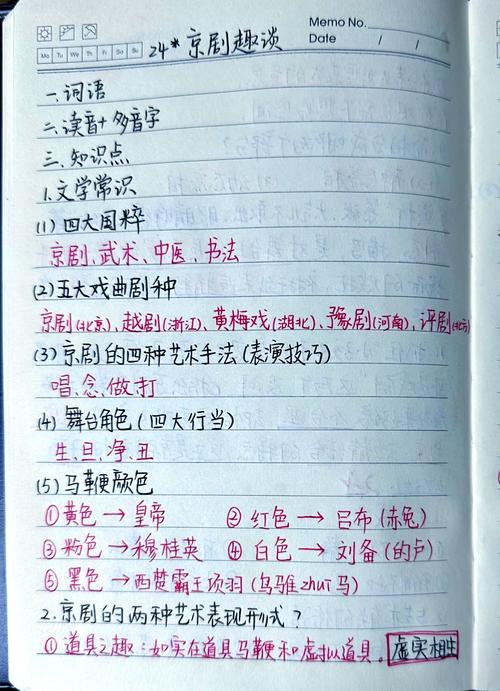 Memo No.
Mo Tu We Th Fr Sa Su
Date / /
24* 京剧趣谈
一、词语
二、读音+多音字
三、知识点
1.文学常识
(1)四大国粹
京剧、武术、中医、书法
(2)五大戏曲剧种
京剧(北京)、越剧(浙江)、黄梅戏(湖北)、豫剧(河南)、评剧(北方)
(3)京剧的四种艺术手法(表演技巧)
唱、念、做、打
(4)舞台角色(四大行当)
生、旦、净、丑
(5)马鞭颜色
①黄色→皇帝 ②红色→吕布(赤兔)
③粉色→穆桂英 ④白色→刘备(的卢)
⑤黑色→西楚霸王项羽(乌骓zhuī马)
2.京剧的两种艺术表现形式?
①道具之趣:如实在道具马鞭和虚拟道具。虚实相生